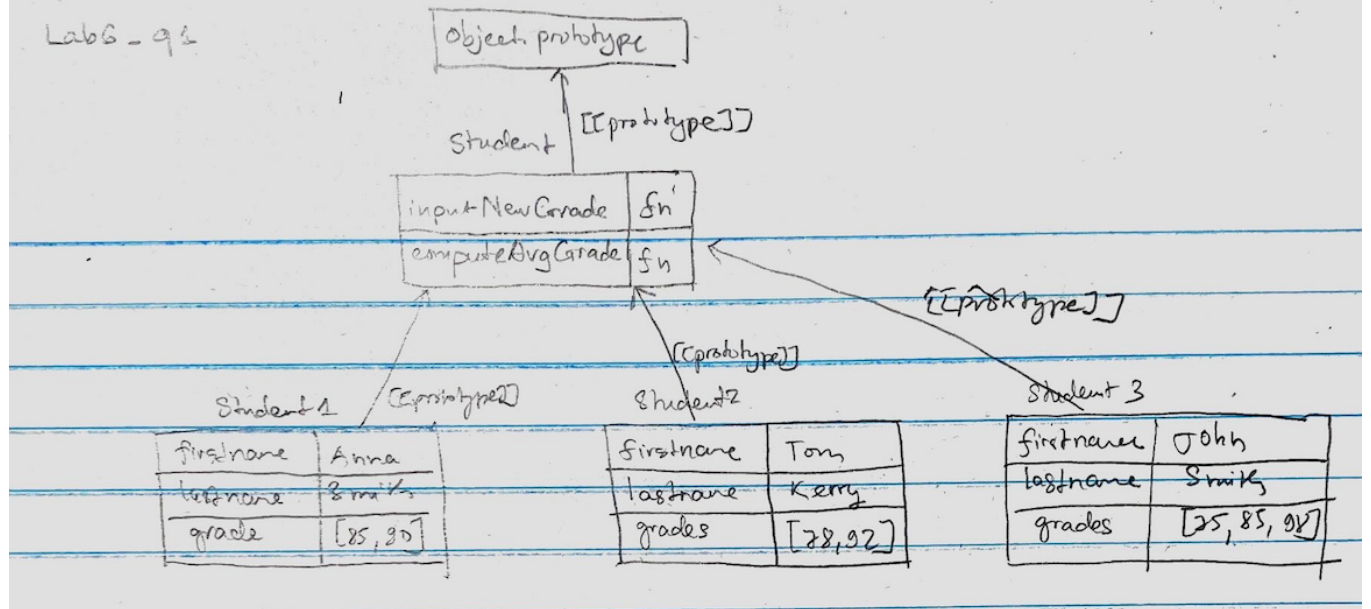 Lab6_q1
Object.prototype
[[prototype]]
Student
inputNewGrade fn
computeAvgGrade fn
[[prototype]]
[[prototype]]
Student1 [[prototype]] Student2 Student 3
firstname Anna
lastname Smith
grade
firstname Tom
lastname Kerry
grades [78,92]
firstname John
lastname Smith
grades